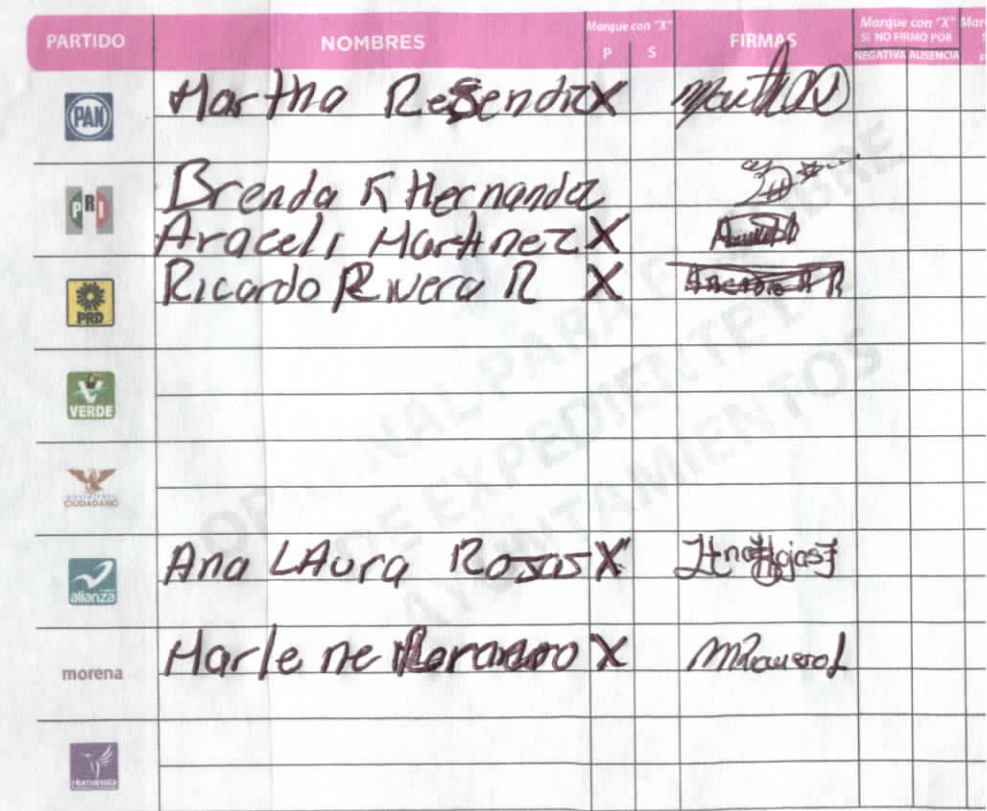 PARTIDO NOMBRES Marque con "X" P S FIRMAS Marque con "X" SI NO FIRMÓ POR NEGATIVA AUSENCIA
PAN Martha Resendiz X
PRI Brenda K Hernandez
Araceli Martinez X
PRD Ricardo Rivera R X
VERDE
MOVIMIENTO CIUDADANO
alianza Ana LAura Rosas X
morena Marlene X
Humanista
ORIGINAL PARA EL SOBRE
DE EXPEDIENTE DE
AYUNTAMIENTOS